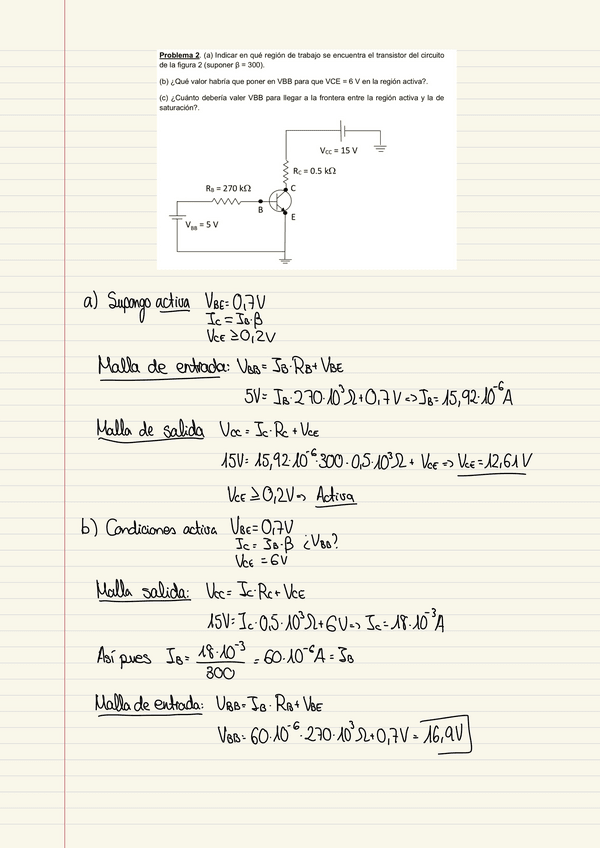 Problema 2. (a) Indicar en qué región de trabajo se encuentra el transistor del circuito
de la figura 2 (suponer β = 300).
(b) ¿Qué valor habría que poner en VBB para que VCE = 6 V en la región activa?.
(c) ¿Cuánto debería valer VBB para llegar a la frontera entre la región activa y la de
saturación?.
VCC = 15 V
RC = 0.5 kΩ
RB = 270 kΩ
C
B
E
VBB = 5 V
a) Supongo activa VBE = 0,7V
IC = IB·β
VCE ≥ 0,2V
Malla de entrada: VBB = IB·RB + VBE
5V = IB·270·10³Ω + 0,7V => IB = 15,92·10⁻⁶A
Malla de salida VCC = IC·RC + VCE
15V = 15,92·10⁻⁶·300·0,5·10³Ω + VCE => VCE = 12,61V
VCE ≥ 0,2V => Activa
b) Condiciones activa VBE = 0,7V
IC = IB·β ¿VBB?
VCE = 6V
Malla salida: VCC = IC·RC + VCE
15V = IC·0,5·10³Ω + 6V => IC = 18·10⁻³A
Así pues IB = 18·10⁻³/300 = 60·10⁻⁶A = IB
Malla de entrada: VBB = IB·RB + VBE
VBB = 60·10⁻⁶·270·10³Ω + 0,7V = 16,9V